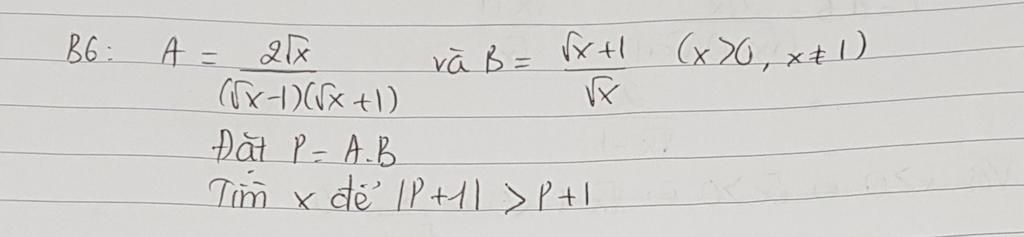 B6: A = 2√x / (√x-1)(√x+1) và B = √x+1 / √x (x>0, x≠1)
Đặt P = A.B
Tìm x để |P+1| > P+1